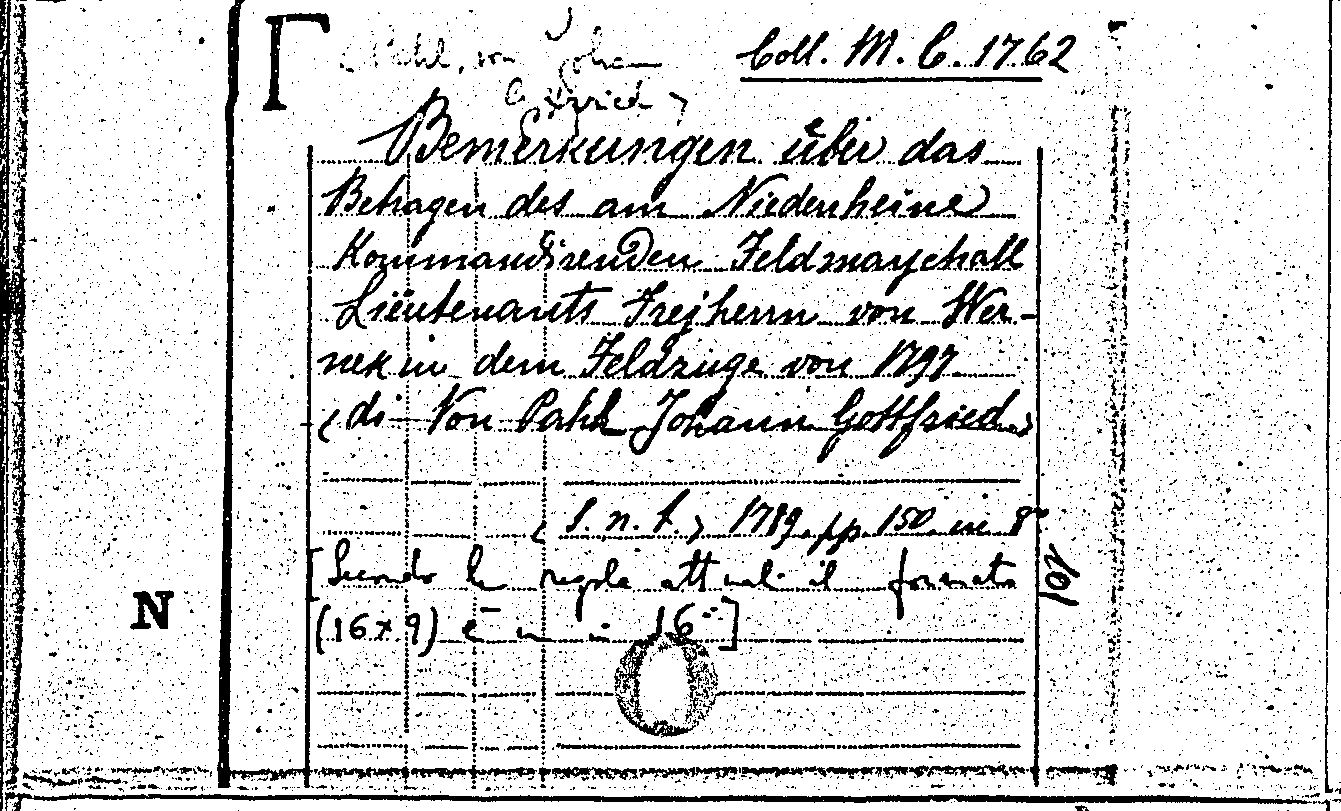 Pahl, von Johann
Gottfried
Coll. M. C. 1762
Bemerkungen über das
Betragen des am Niederrheine
Kommandirenden Feldmarschall
Lieutenants Freiherrn von Wer-
nek in dem Feldzuge von 1797
(di Von Pahl Johann Gottfried)
(S. n. t.) 1789. pp. 150 in 8°
[Secondo le regole attuali il formato
(16x9) è in 16°]
101
N